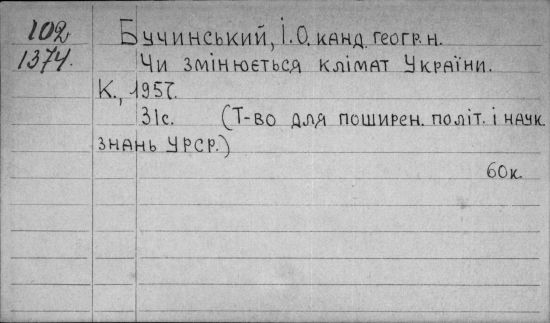 102
1374.
Бучинський, І.О. канд. геогр. н.
Чи змінюється клімат України.
К., 1957.
31с. (Т-во для поширен. політ. і наук.
знань УРСР.)
60к.